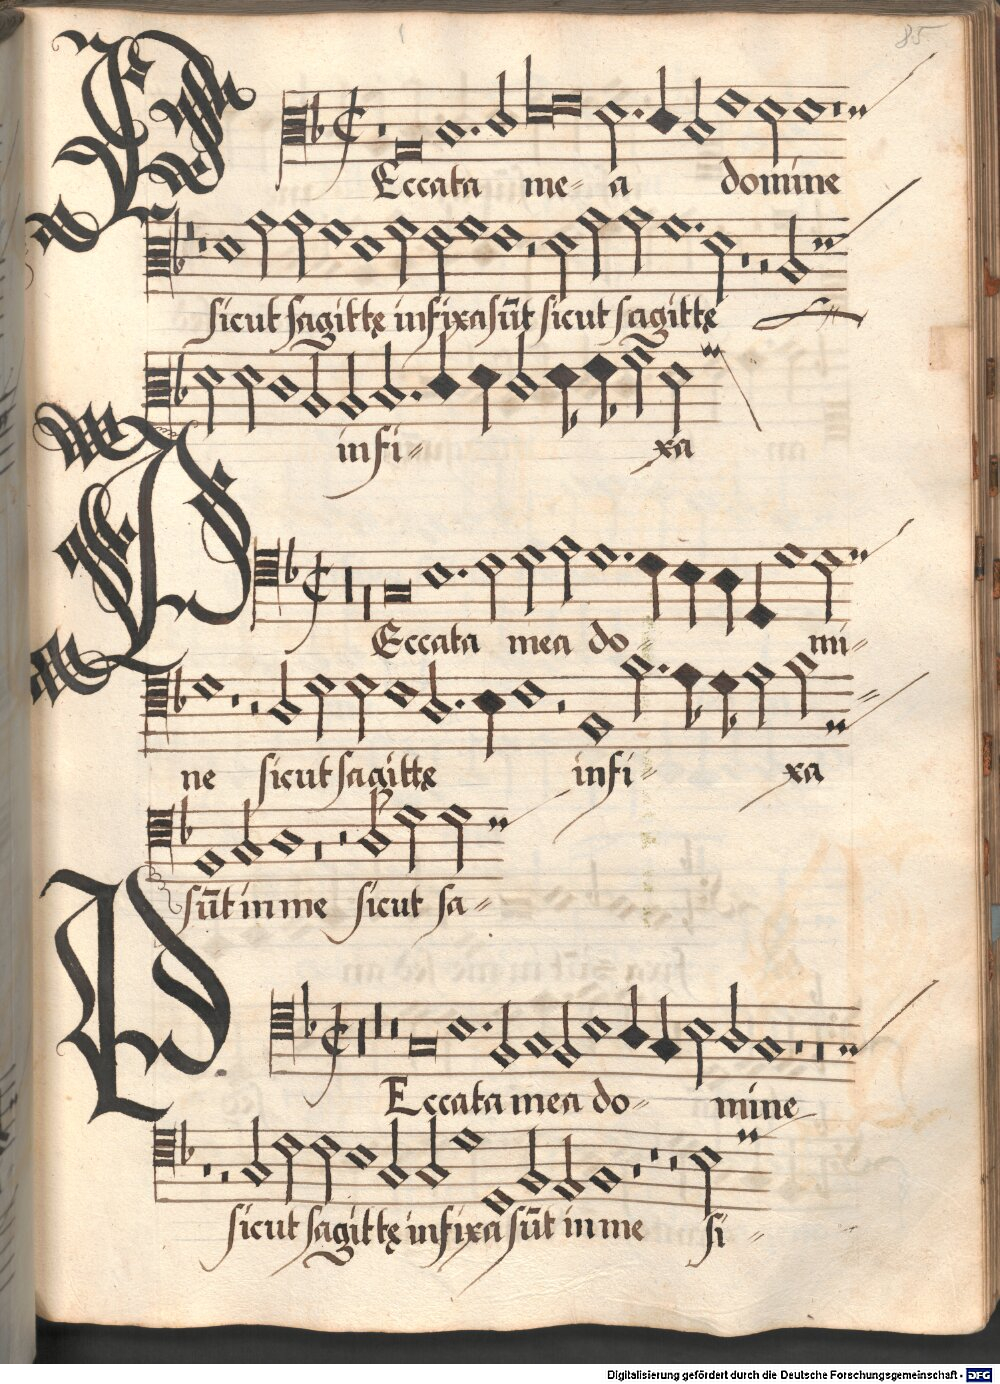 85.
PEccata me= a domine
sicut sagittę infixa sūt sicut sagittę
infi= xa
PEccata mea do= mi=
ne sicut sagittę infi= xa
sūt in me sicut sa=
PEccata mea do= mine
sicut sagittę infixa sūt in me si=
Digitalisierung gefördert durch die Deutsche Forschungsgemeinschaft - DFG